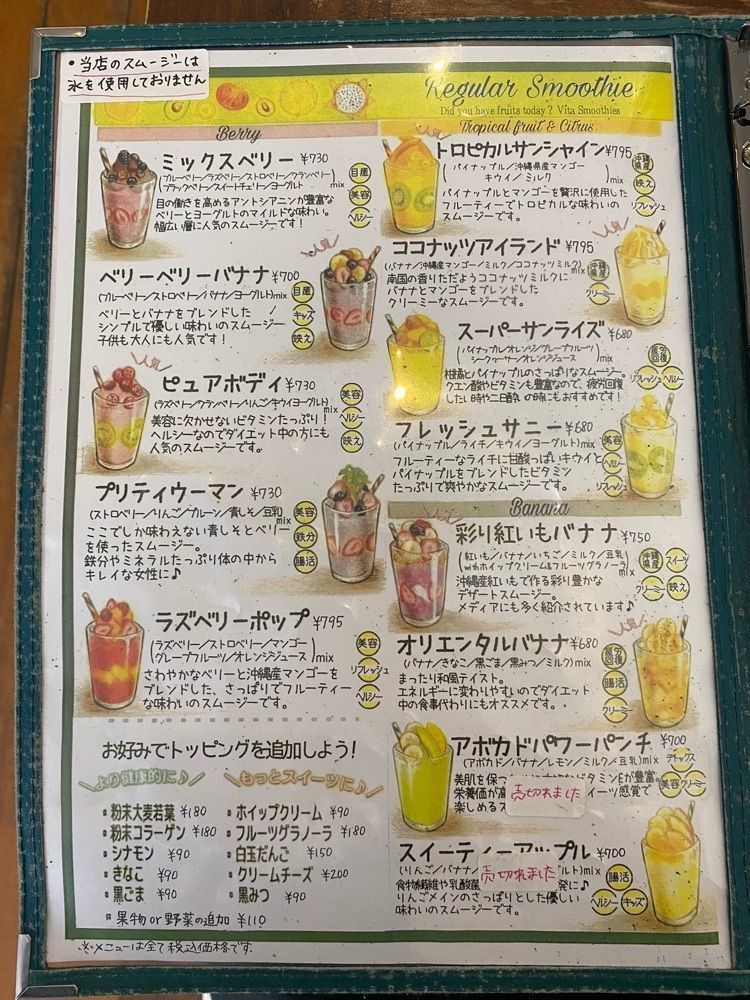 ・当店のスムージーは
氷を使用しておりません
Regular Smoothie
Did you have fruits today? Vita Smoothies
Berry
ミックスベリー ¥730
(ブルーベリー/ラズベリー/ストロベリー/クランベリー/
ブラックベリー/スイートチェリー/ヨーグルト) mix
目の働きを高めるアントシアニンが豊富な
ベリーとヨーグルトのマイルドな味わい。
幅広い層に人気のスムージーです!
美容
ヘルシー
人気♪
ベリーベリーバナナ ¥700
(ブルーベリー/ストロベリー/バナナ/ヨーグルト)mix
ベリーとバナナをブレンドした
シンプルで優しい味わいのスムージー♪
子供も大人にも人気です!
キッズ
映え
人気♪
ピュアボディ ¥730
(ラズベリー/クランベリー/りんご/キウイ/ヨーグルト)
mix
美容に欠かせないビタミンたっぷり!
ヘルシーなのでダイエット中の方にも
人気のスムージーです。
美容
ヘルシー
映え
プリティウーマン ¥730
(ストロベリー/りんご/プルーン/青しそ/豆乳)
mix
ここでしか味わえない青しそとベリー
を使ったスムージー。
鉄分やミネラルたっぷり体の中から
キレイな女性に♪
美容
鉄分
腸活
ラズベリーポップ ¥795
(ラズベリー/ストロベリー/マンゴー/
グレープフルーツ/オレンジジュース) mix
さわやかなベリーと沖縄産マンゴーを
ブレンドした、さっぱりでフルーティー
な味わいのスムージーです。
美容
リフレッシュ
ヘルシー
お好みでトッピングを追加しよう!
より健康的に♪
・粉末大麦若葉 ¥180
・粉末コラーゲン ¥180
・シナモン ¥90
・きなこ ¥90
・黒ごま ¥90
もっとスイーツに♪
・ホイップクリーム ¥90
・フルーツグラノーラ ¥180
・白玉だんご ¥150
・クリームチーズ ¥200
・黒みつ ¥90
果物or野菜の追加 ¥110
※メニューは全て税込価格です。
Tropical fruit & Citrus
人気
トロピカルサンシャイン ¥795
(パイナップル/沖縄県産マンゴー
キウイ/ミルク) mix
パイナップルとマンゴーを贅沢に使用した
フルーティーでトロピカルな味わいの
スムージーです。
沖縄県産
映え
リフレッシュ
ココナッツアイランド ¥795
人気♪
(バナナ/沖縄産マンゴー/ミルク/ココナッツミルク)
mix
南国の香りただようココナッツミルクに
バナナとマンゴーをブレンドした
クリーミーなスムージーです。
沖縄県産
クリーミー
スーパーサンライズ ¥680
(パイナップル/オレンジ/グレープフルーツ/
シークヮーサー/オレンジジュース) mix
柑橘とパイナップルのさっぱりなスムージー。
クエン酸やビタミンも豊富なので、疲労回復
したい時や二日酔いの時にもおすすめです!
疲労回復
リフレッシュ
ヘルシー
フレッシュサニー ¥680
(パイナップル/ライチ/キウイ/ヨーグルト)mix
フルーティーなライチに甘酸っぱいキウイと
パイナップルをブレンドしたビタミン
たっぷりで爽やかなスムージーです。
美容
ヘルシー
リフレッシュ
Banana
人気
彩り紅いもバナナ ¥750
(紅いも/バナナ/いちご/ミルク/豆乳
withホイップクリーム&フルーツグラノーラ)
mix
沖縄産紅いもで作る彩り豊かな
デザートスムージー。
メディアにも多く紹介されています♪
沖縄県産
スイーツ
クリーミー
映え
オリエンタルバナナ ¥680
人気♪
(バナナ/きなこ/黒ごま/黒みつ/ミルク)mix
まったり和風テイスト。
エネルギーに変わりやすいのでダイエット
中の食事代わりにもオススメです。
疲労回復
腸活
クリーミー
アボカドパワーパンチ ¥700
(アボカド/バナナ/レモン/ミルク/豆乳)mix
美肌を保つ
ビタミンEが豊富。
栄養価が高
イーツ感覚で
楽しめるス
売切れました
デトックス
美容
クリーミー
スイーティーアップル ¥700
(りんご/バナナ/
ルト)mix
食物繊維や乳酸菌
発に♪
りんごメインのさっぱりとした優しい
味わいのスムージーです。
売切れました
腸活
ヘルシー
キッズ